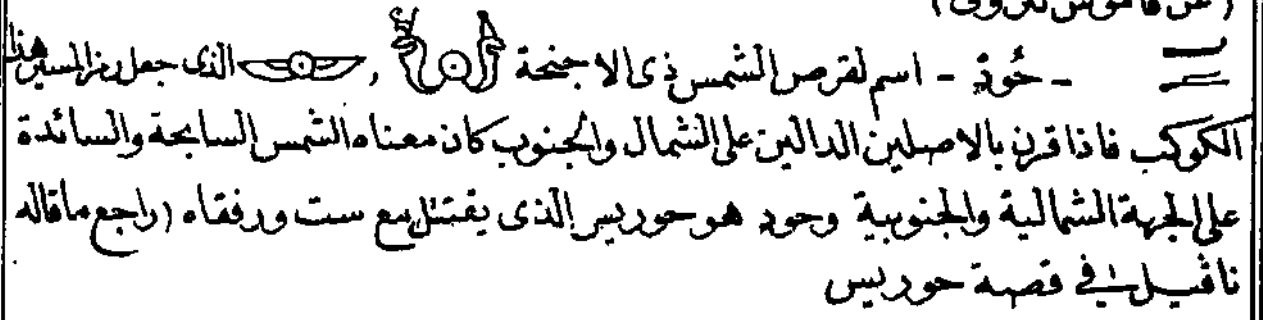 (عن قاموس لمروفى)
- حُود - اسم لقرص الشمس ذى الاجنحة , الذى جعل رمزا لسير هذا
الكوكب فاذا قرن بالاصلين الدالين على الشمال والجنوب كان معناه الشمس السابحة والسائدة
على الجهة الشمالية والجنوبية وحود هو حوريس الذى يقتتل مع ست ورفقاه (راجع ماقاله
ناڤيل فى قصة حوريس